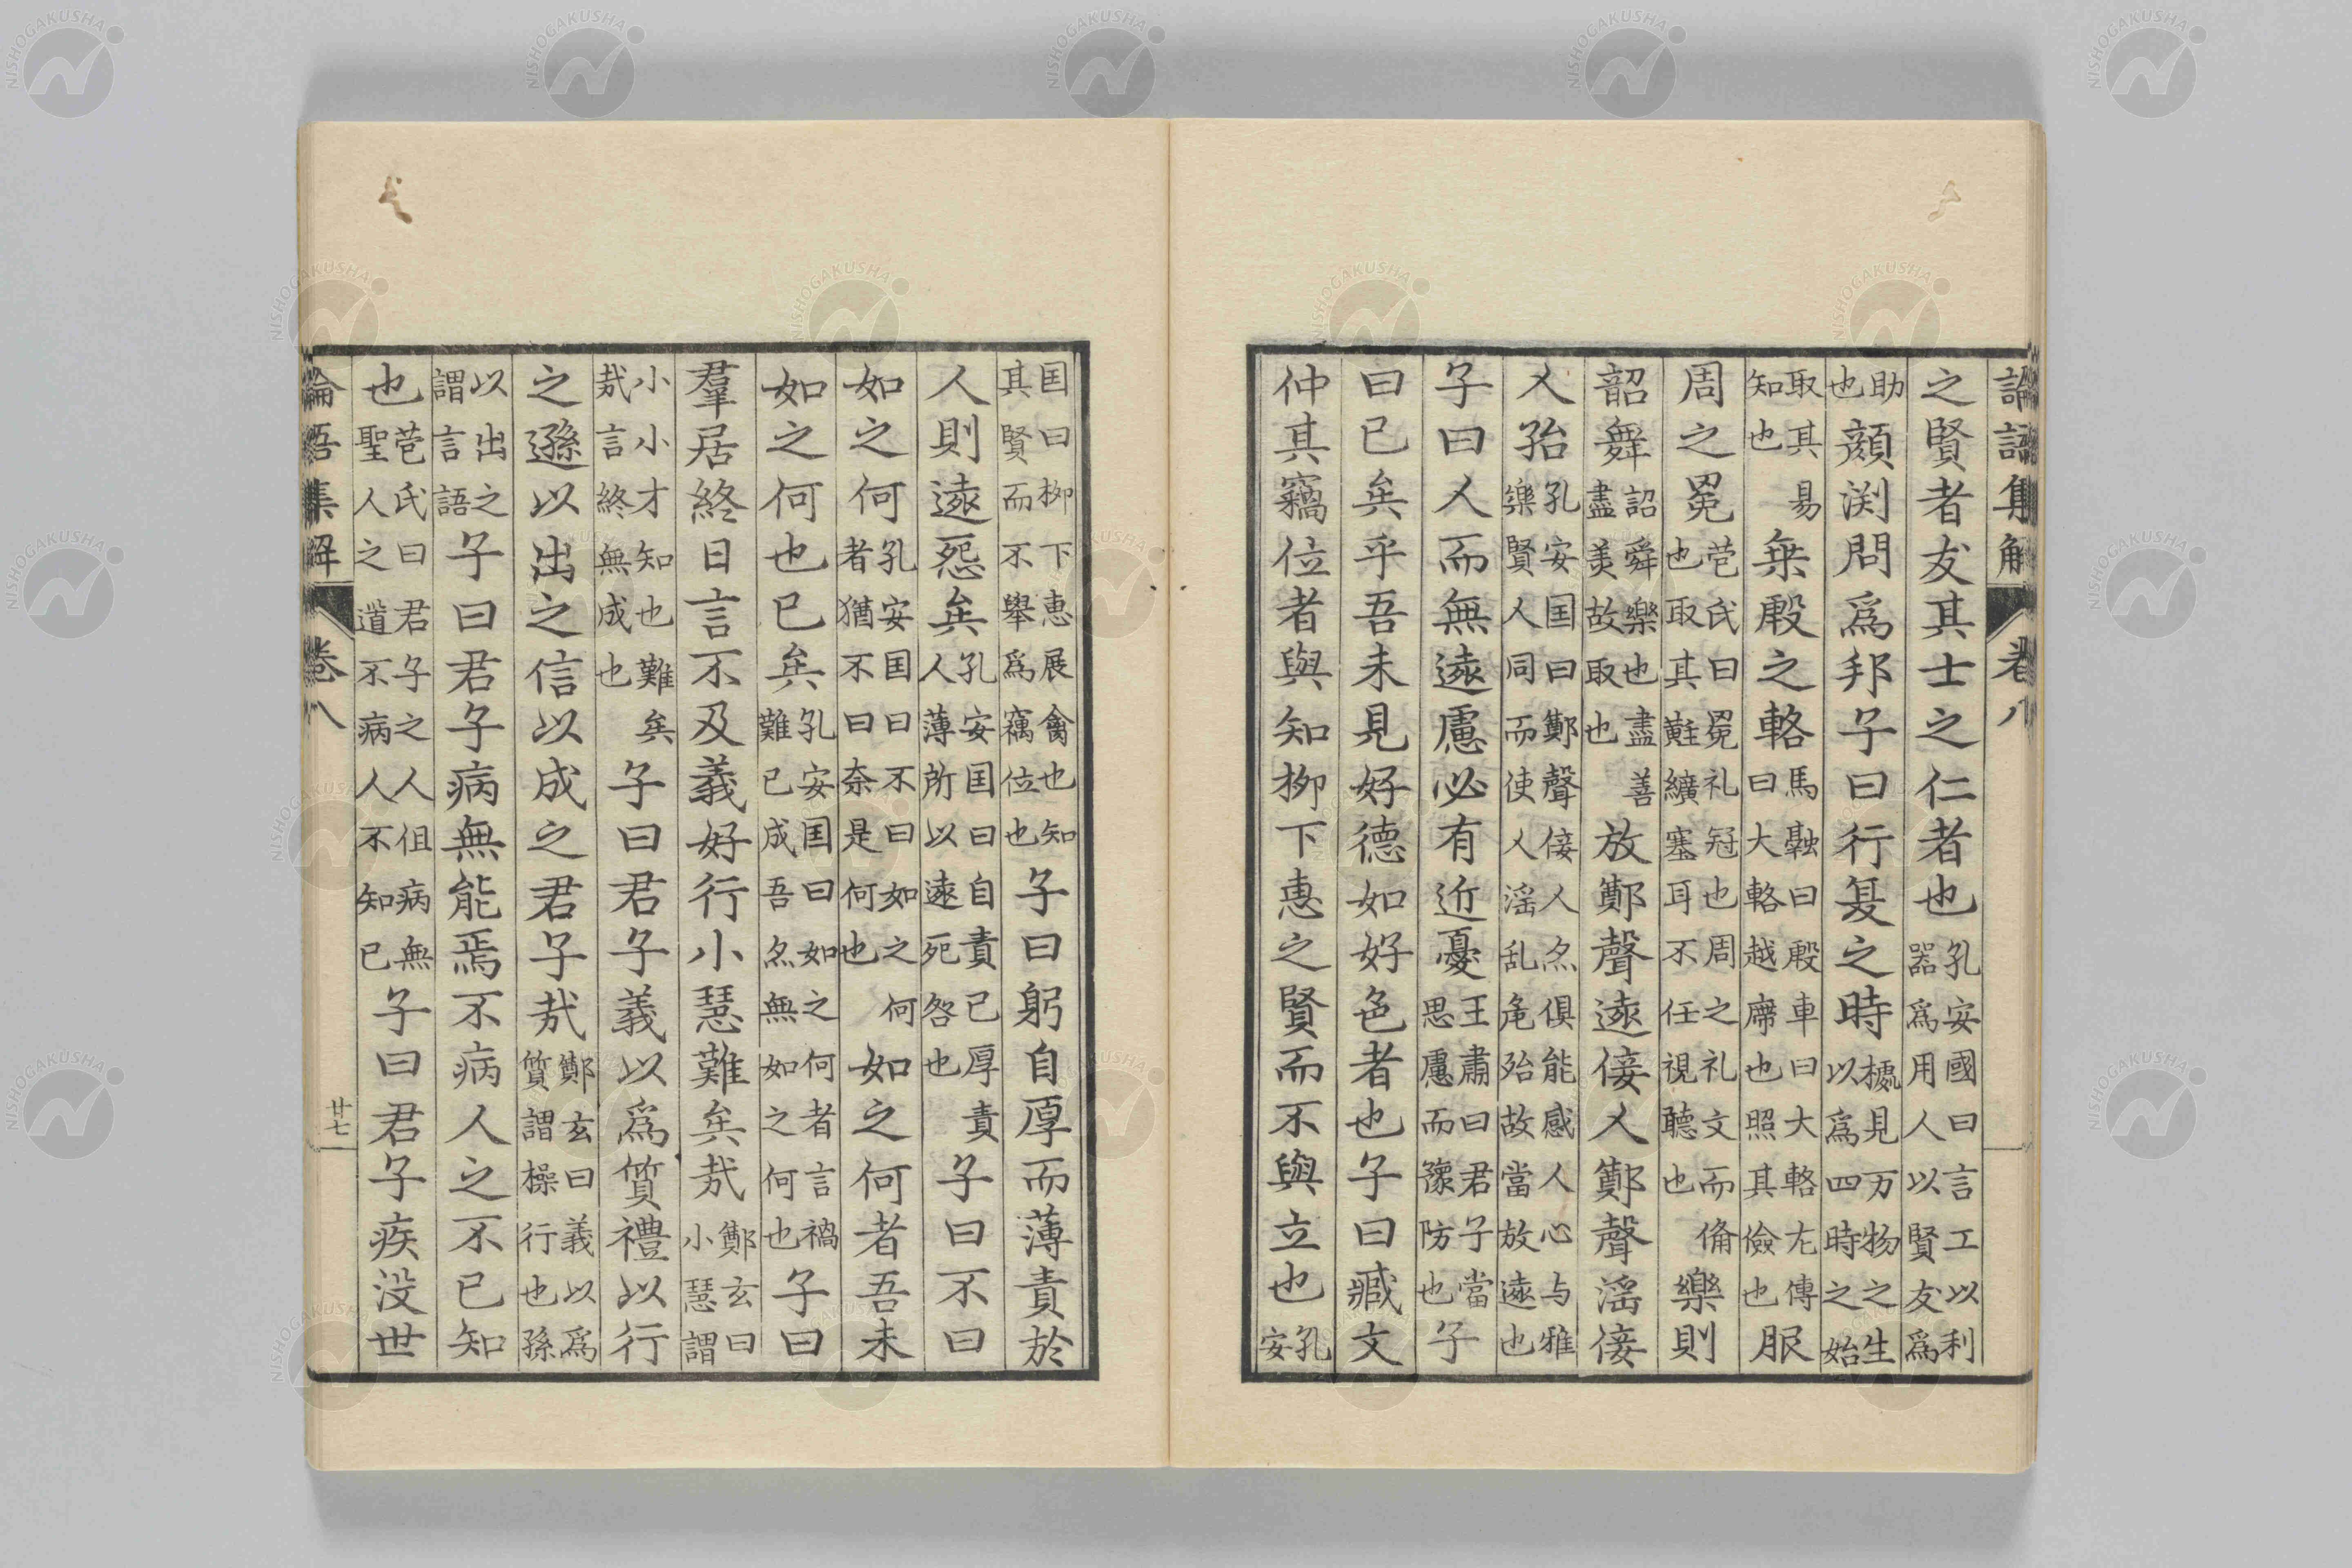 論語集解 卷八
之賢者友其士之仁者也孔安國曰言工以利器爲用人以賢友爲
助也顔渕問爲邦子曰行夏之時㯫見万物之生以爲四時之始
取其易知也乗殷之輅馬融曰殷車曰大輅左傳曰大輅越席也照其儉也服
周之冕苞氏曰冕礼冠也周之礼文而俻也取其黈纊塞耳不任視聽也樂則
韶舞詔舜樂也盡善盡美故取也放鄭聲遠佞人鄭聲淫佞
人殆孔安囯曰鄭聲佞人亦俱能感人心与雅樂賢人同而使人淫乱危殆故當放遠也
子曰人而無遠慮必有近憂王肅曰君子當思慮而豫防也子
曰已矣乎吾未見好德如好色者也子曰臧文
仲其竊位者與知柳下惠之賢而不與立也孔安
囯曰柳下惠展禽也知其賢而不舉爲竊位也子曰躬自厚而薄責於
人則遠怨矣孔安囯曰自責己厚責人薄所以遠死咎也子曰不曰
如之何孔安囯曰不曰如之何者猶不曰奈是何也如之何者吾未
如之何也已矣孔安囯曰如之何者言禍難已成吾亦無如之何也子曰
羣居終日言不及義好行小慧難矣哉鄭玄曰小慧謂
小小才知也難矣哉言終無成也子曰君子義以爲質禮以行
之遜以出之信以成之君子哉鄭玄曰義以爲質謂操行也孫
以出之謂言語子曰君子病無能焉不病人之不已知
也苞氏曰君子之人但病無聖人之道不病人不知己子曰君子疾没世
論語集解 卷八 廿七